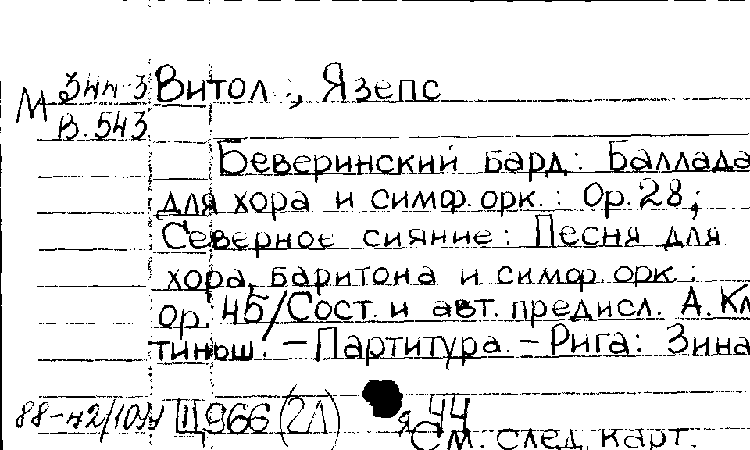 М Знч-3 Витол:, Язепс
В. 543
Беверинский бард: Баллада
для хора и симф. орк.: Ор. 28;
Северное сияние: Песня для
хора, баритона и симф. орк.:
ор. 45/Сост. и авт. предисл. А. Кл
тиньш. - Партитура. - Рига: Зина
Щ966 (2Л) Я 44
См. след. карт.